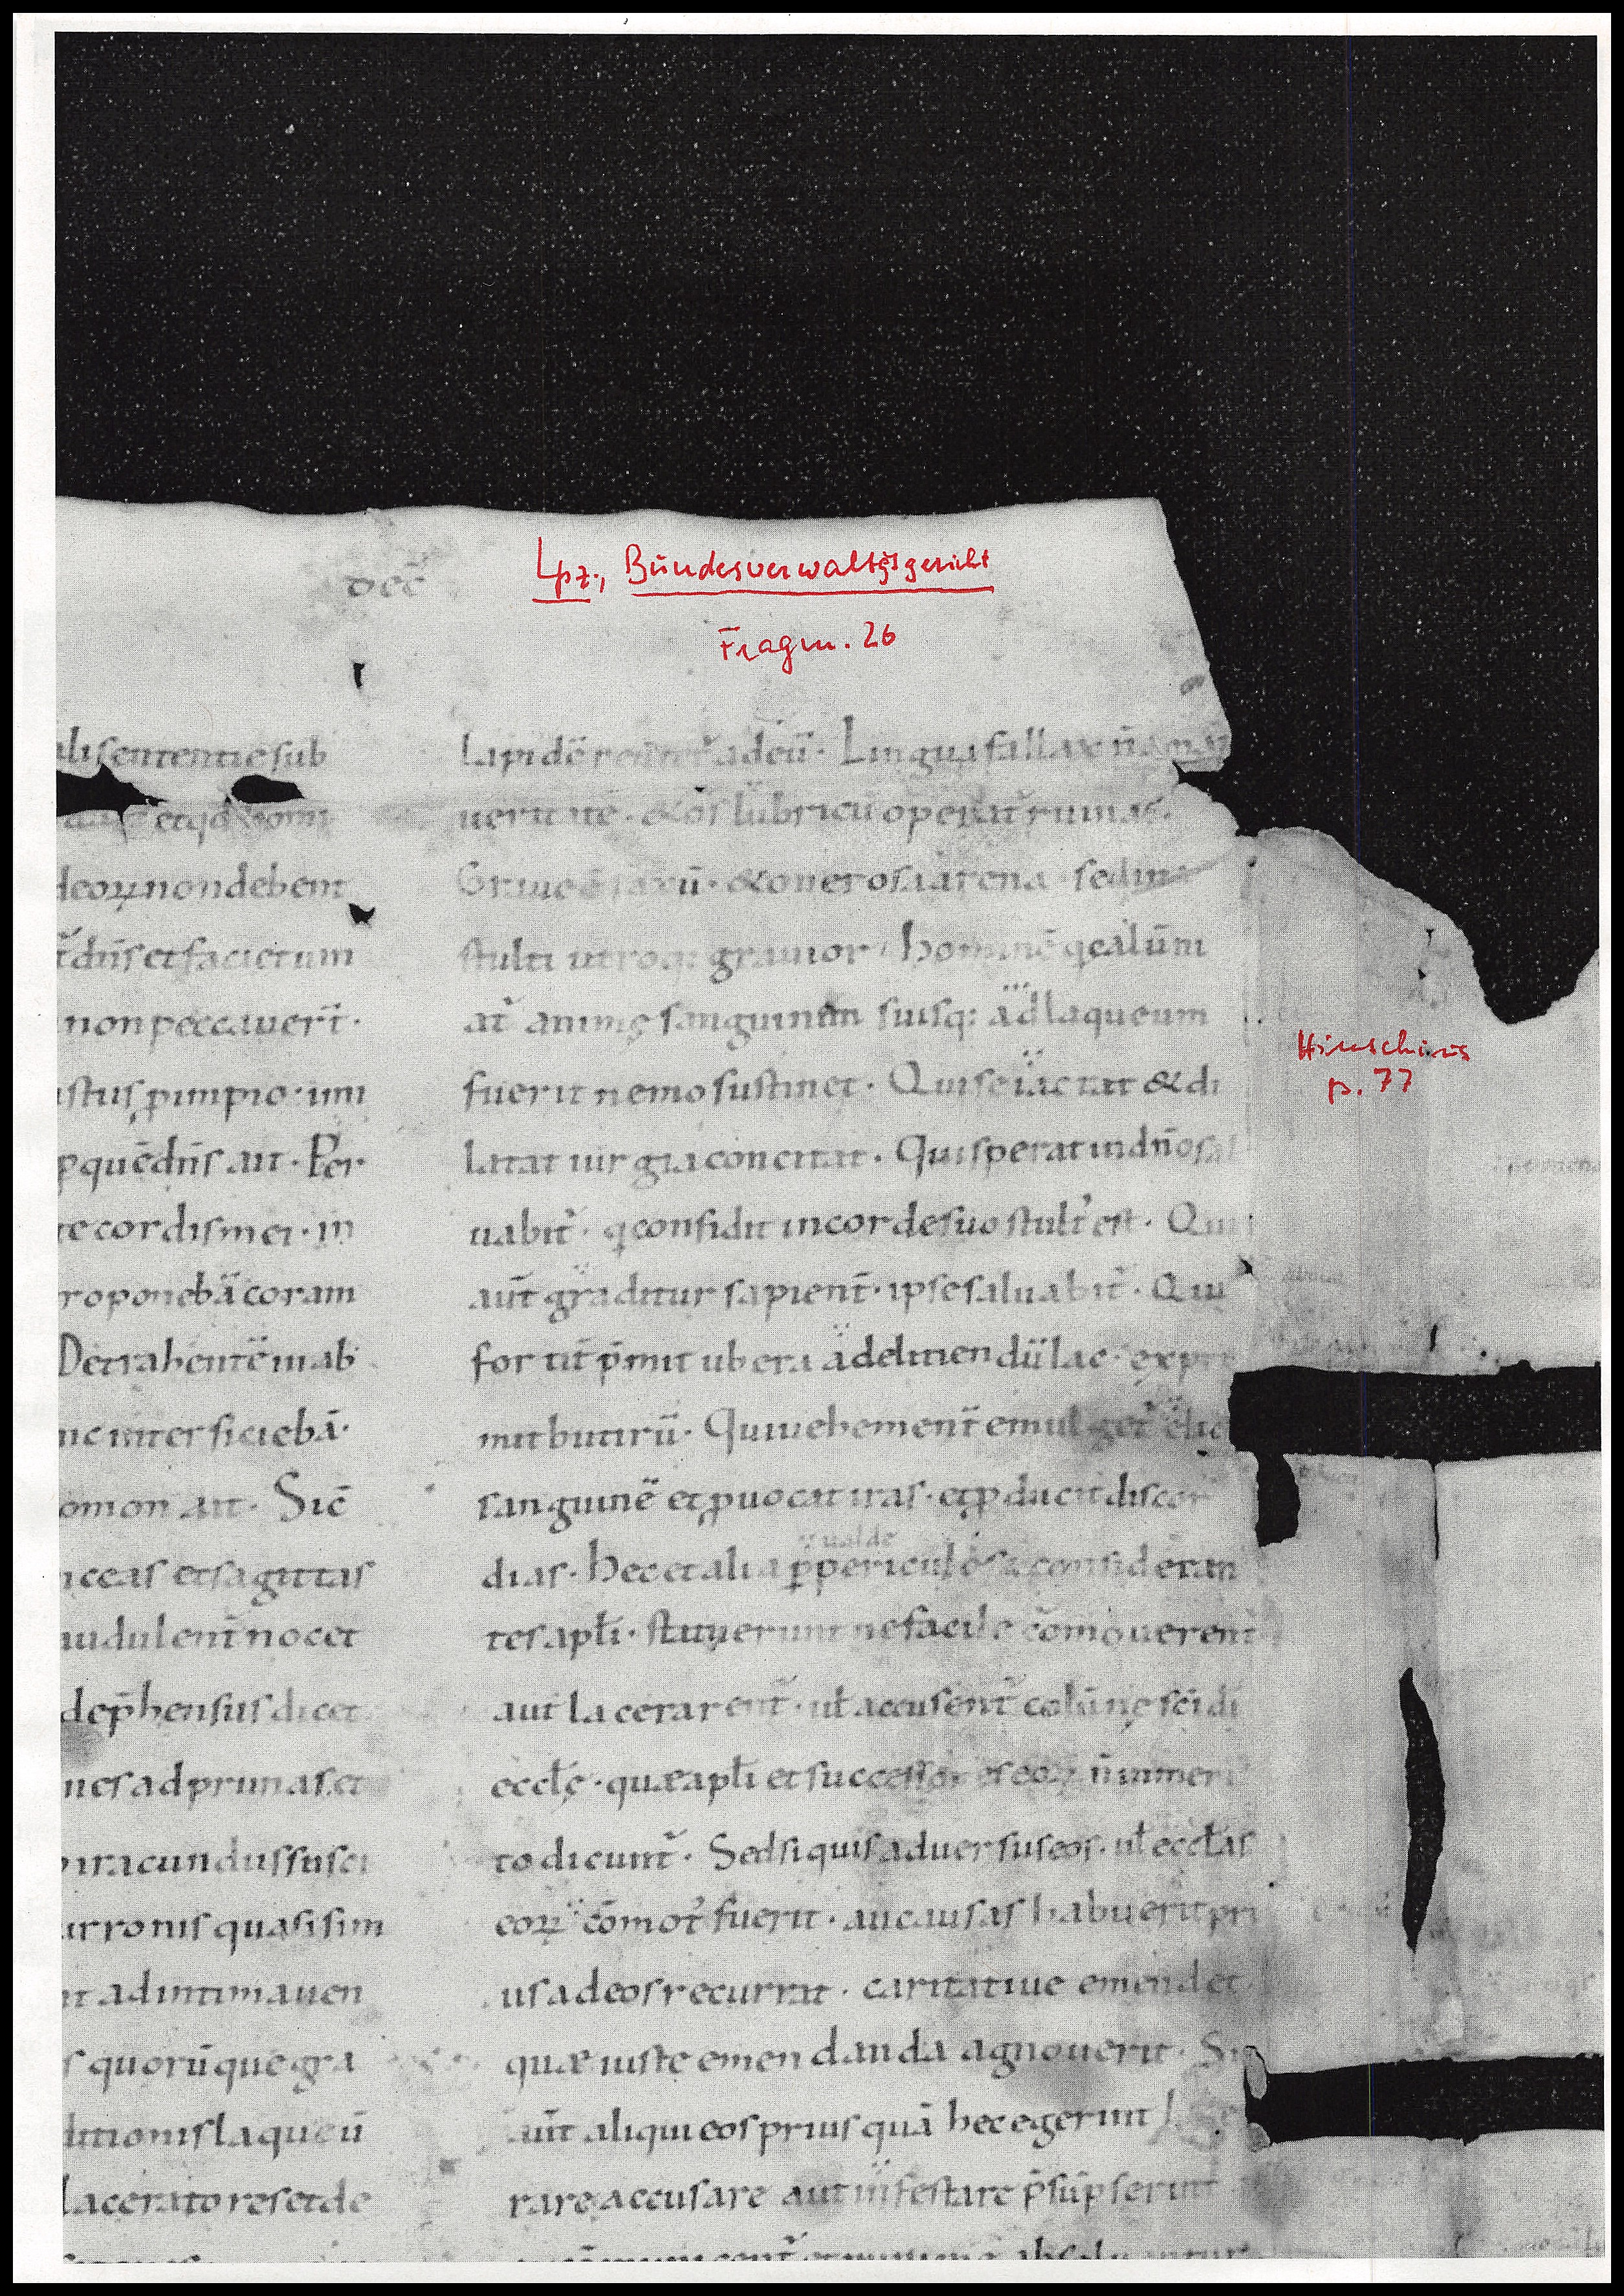 Lpz., Bundesverwaltgsgericht
Fragm. 26
Hinschius
p. 77
ali sententie sub
etqd com
deoꝝ non debent
t̄ dn̄s et facietum
non peccauer̄t·
ustus p impio· imi
p quē dn̄s ait· Per
te cordis mei· in
roponebā coram
Detrahentē mab
nc inter ficiebā·
omon ait· Sic̄
acceas et sagittas
audulent̄ nocet
dep̄hensus dicet
nes ad prunas et
iracundus susci
urronis quasi sim
t ad intima uen
s quorū que gra
ditionis laqueū
lacerato res et de
Lapidē ad eū· Lingua fallax n̄ amat
ueritatē· & os lubricū operat̄ ruinas·
Graue ē saxū· & onerosa arena· sed ira
stulti utroq: grauior· hominē q calūni
at̄ animę sanguinem suisq: ad laqueum
fuerit nemo sustinet· Qui se iactat & di
latat iurgia concitat· Qui sperat in dn̄o sal
uabit̄· q confidit in corde suo stult' est· Qui
aut̄ graditur sapient̄· ipse saluabit̄· Qui
fortit̄ p̄mit ubera ad eliciendū lac· expri
mit butirū· Qui uehement̄ emulget elic
sanguinē et puocat iras· et pducit discor
ualde
dias· hec et alia p pericula consideran
tes apl̄i· statuerunt ne facile cōmouerent̄
aut lacerarent̄· ul̄ accusent̄ colūnę sc̄i di
eccl̄ę· quæ apl̄i et successores eoꝝ n̄ inmeri
to dicunt̄· Sed si quis aduersus eos· ul̄ eccl̄as
eoꝝ cōmot' fuerit· au causas habuerit pri
us ad eos recurrat· caritatiue emendet
quæ iuste emendanda agnouerit· Si
aut̄ aliqui eos prius quā hec egerint
rare accusare aut infestare p̄sūpserint